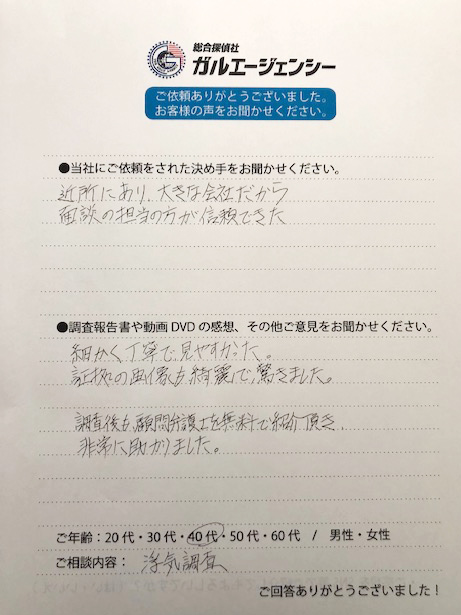 総合探偵社
ガルエージェンシー
ご依頼ありがとうございました。
お客様の声をお聞かせください。
●当社にご依頼をされた決め手をお聞かせください。
近所にあり、大きな会社だから
面談の担当の方が信頼できた
●調査報告書や動画DVDの感想、その他ご意見をお聞かせください。
細かく丁寧で見やすかった。
証拠の画像も綺麗で驚きました。
調査後も顧問弁護士を無料で紹介頂き、
非常に助かりました。
ご年齢：20代・30代・40代・50代・60代 / 男性・女性
ご相談内容： 浮気調査
ご回答ありがとうございました！